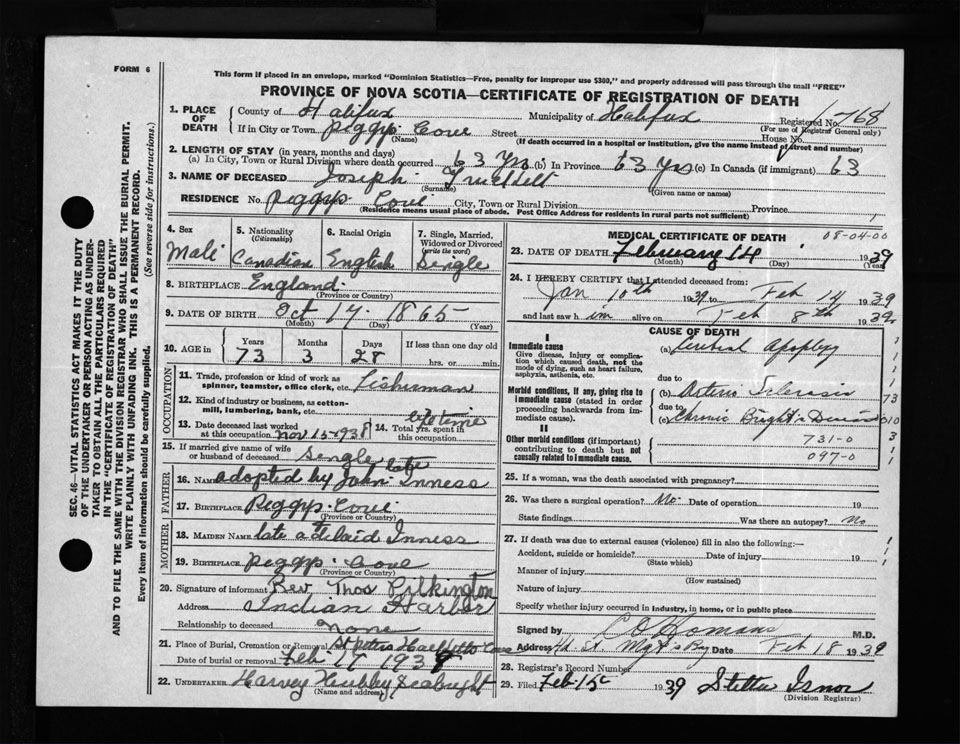 FORM 6
This form if placed in an envelope, marked "Dominion Statistics—Free, penalty for improper use $300," and properly addressed will pass through the mail "FREE"
PROVINCE OF NOVA SCOTIA—CERTIFICATE OF REGISTRATION OF DEATH
1. PLACE OF DEATH
County of Halifax Municipality of Halifax Registered No. 768
(For use of Registrar General only)
If in City or Town Peggys Cove Street House No.
(Name) (If death occurred in a hospital or institution, give the name instead of street and number)
2. LENGTH OF STAY (in years, months and days)
(a) In City, Town or Rural Division where death occurred 63 Yrs (b) In Province 63 Yrs (c) In Canada (if immigrant) 63
3. NAME OF DECEASED Joseph
(Surname) (Given name or names)
RESIDENCE No. Peggys Cove City, Town or Rural Division Province
(Residence means usual place of abode. Post Office Address for residents in rural parts not sufficient)
4. Sex Male
5. Nationality (Citizenship) Canadian
6. Racial Origin English
7. Single, Married, Widowed or Divorced (write the word) Sengle
8. BIRTHPLACE England
(Province or Country)
9. DATE OF BIRTH Oct 17 1865
(Month) (Day) (Year)
10. AGE in Years Months Days If less than one day old
73 3 28 hrs. or min.
OCCUPATION
11. Trade, profession or kind of work as spinner, teamster, office clerk, etc. Fisherman
12. Kind of industry or business, as cotton-mill, lumbering, bank, etc.
13. Date deceased last worked at this occupation Nov 15-1938
14. Total yrs. spent in this occupation
15. If married give name of wife or husband of deceased Sengle
FATHER
16. Name adopted by late John Inness
17. Birthplace Peggys Cove
(Province or Country)
MOTHER
18. Maiden Name late adelaid Inness
19. Birthplace Peggys Cove
(Province or Country)
20. Signature of informant Rev Thos Pilkington
Address Indian Harbor
Relationship to deceased none
21. Place of Burial, Cremation or Removal St Peters
Date of burial or removal Feb 17 1939
22. UNDERTAKER Harvey Hubley Seabright
(Name and address)
MEDICAL CERTIFICATE OF DEATH
08-04-00
23. DATE OF DEATH February 14 1939
(Month) (Day) (Year)
24. I HEREBY CERTIFY that I attended deceased from:
Jan 10th 1939 to Feb 14 1939
and last saw him alive on Feb 8th 1939
CAUSE OF DEATH
I
Immediate cause
Give disease, injury or complication which caused death, not the mode of dying, such as heart failure, asphyxia, asthenia, etc.
(a) Cerebral Apoplexy
due to
Morbid conditions, if any, giving rise to immediate cause (stated in order proceeding backwards from immediate cause).
(b) Arterio Sclerosis
due to
(c) Chronic Bright's
II
Other morbid conditions (if important) contributing to death but not causally related to immediate cause.
731-0
097-0
73
010
25. If a woman, was the death associated with pregnancy?
26. Was there a surgical operation? No Date of operation 19
State findings Was there an autopsy? No
27. If death was due to external causes (violence) fill in also the following:—
Accident, suicide or homicide? Date of injury 19
(State which)
Manner of injury
(How sustained)
Nature of injury
Specify whether injury occurred in industry, in home, or in public place
Signed by M.D.
Address Date Feb 18 1939
28. Registrar's Record Number
29. Filed Feb. 1939 Stella Isnor
(Division Registrar)
SEC. 46—VITAL STATISTICS ACT MAKES IT THE DUTY
OF THE UNDERTAKER OR PERSON ACTING AS UNDER-
TAKER TO OBTAIN ALL THE PARTICULARS REQUIRED
IN THE "CERTIFICATE OF REGISTRATION OF DEATH"
AND TO FILE THE SAME WITH THE DIVISION REGISTRAR WHO SHALL ISSUE THE BURIAL PERMIT.
WRITE PLAINLY WITH UNFADING INK. THIS IS A PERMANENT RECORD.
Every item of information should be carefully supplied. (See reverse side for instructions.)